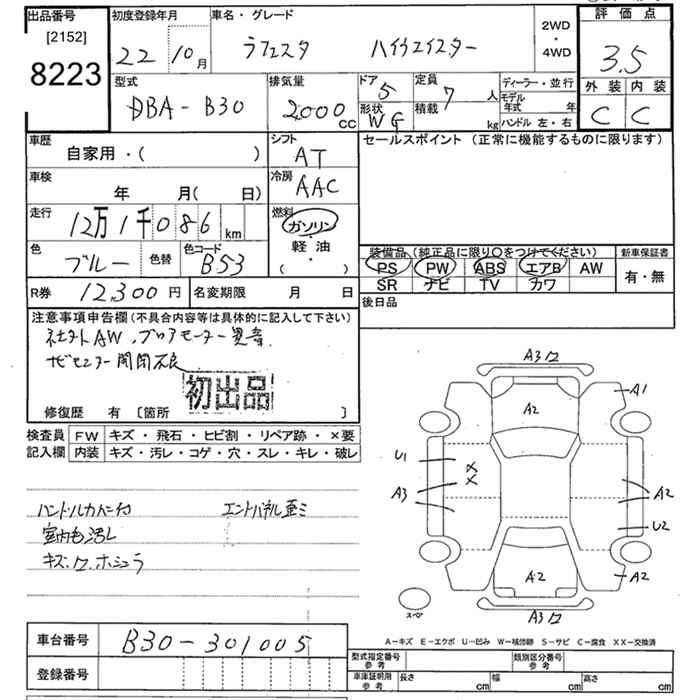 出品番号
[2152]
8223
初度登録年月
22 10月
車名・グレード
ラフェスタ ハイウェイスター
2WD
・
4WD
評価点
3.5
外装 内装
C C
型式
DBA-B30
排気量
2000
CC
ドア
5
形状
WG
定員
7人
積載
kg
ディーラー・並行
モデル
年式 年
ハンドル 左・右
車歴
自家用・( )
シフト
AT
セールスポイント (正常に機能するものに限ります)
車検
年 月( 日)
冷房
AAC
走行
12万1千086km
燃料
ガソリン
・
軽油
( ・ )
色
ブルー
色替
色コード
B53
装備品 (純正品に限り○をつけてください)
PS PW ABS エアB AW
SR ナビ TV カワ
新車保証書
有・無
R券 12,300円
名変期限 月 日
後日品
注意事項申告欄 (不具合内容等は具体的に記入して下さい)
社外AW、ブロアモーター異音
ナビモニター開閉不良
初出品
修復歴 有 〔箇所 〕
検査員 FW キズ・飛石・ヒビ割・リペア跡・×要
記入欄 内装 キズ・汚レ・コゲ・穴・スレ・キレ・破レ
ハンドル エンドパネル歪ミ
室内 汚レ
キズ.
A3
A1
A2
U1
A3
X
X
A2
U2
A2
A2
A3
スペア
A-キズ E-エクボ U-凹み W-補修跡 S-サビ C-腐食 XX-交換済
車台番号 B30-301005
登録番号
型式指定番号
参考
類別区分番号
参考
車庫証明用
参考
長さ cm 幅 cm 高さ cm